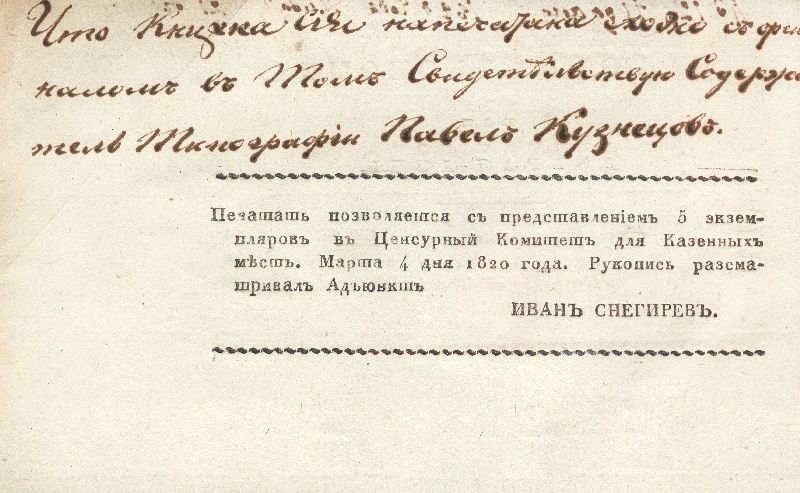 Что Книжка сія напечатана сходно съ ориги
наломъ въ томъ Свидетѣльствую Содержа
тель Типографіи Павелъ Кузнецовъ.
Печатать позволяется съ представленіемъ 5 экзем-
пляровъ въ Ценсурный Комитетъ для Казенныхъ
мѣстъ. Марта 4 дня 1820 года. Рукопись разсма-
тривалъ Адъюнктъ
ИВАНЪ СНЕГИРЕВЪ.